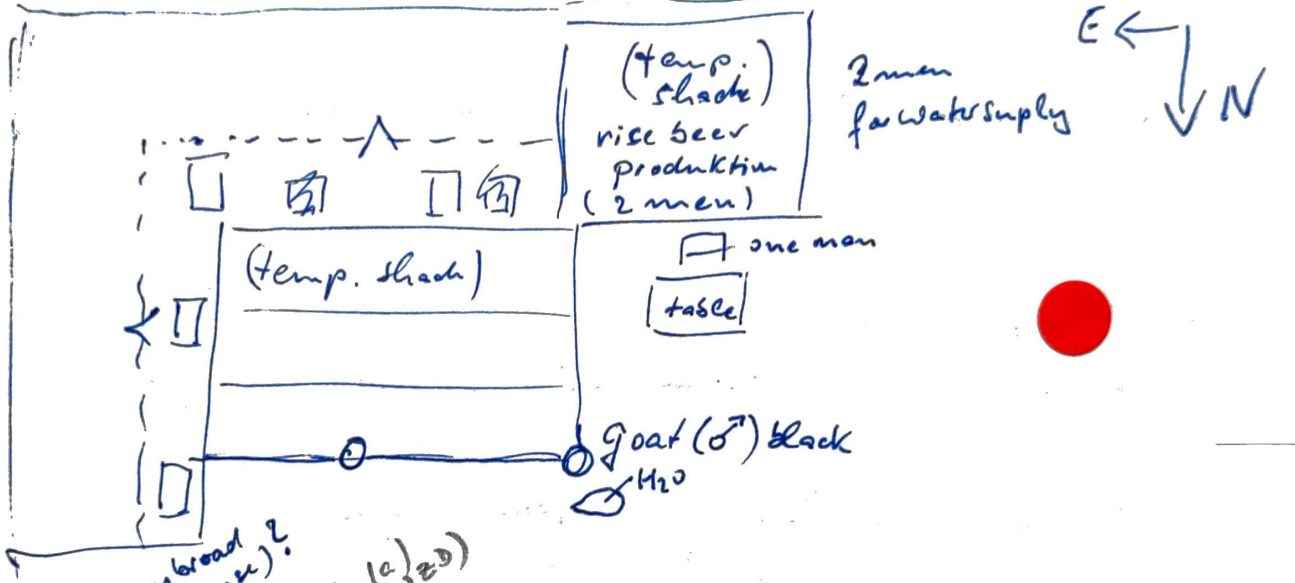 E
N
(temp.
shade)
rise beer
produktion
(2 men)
2 men
for watersuply
(temp. shade)
one man
table
goat (♂) black
H₂O
broad ?